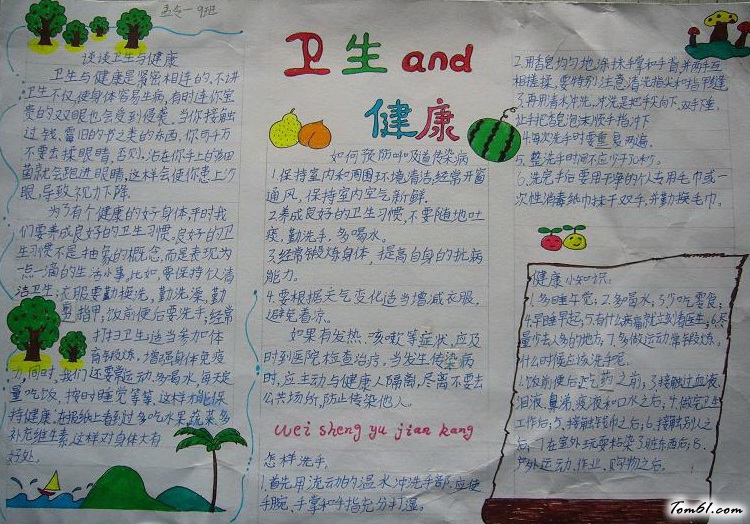 谈谈卫生与健康
卫生与健康是紧密相连的,不讲
卫生不仅使身体容易生病,有时连你宝
贵的双眼也会受到侵袭。当你接触
过钱、霉旧的书之类的东西,你可千万
不要去揉眼睛,否则,沾在你手上的细
菌就会跑进眼睛,这样会使你患上沙
眼,导致视力下降.
为了有个健康的好身体,平时我
们要养成良好的卫生习惯.良好的卫
生习惯不是抽象的概念,而是表现为
一点一滴的生活小事,比如,要保持公清
洁卫生;衣服要勤换洗,勤洗澡,勤
剪指甲,饭前便后要洗手;经常
打扫卫生适当参加体
育锻炼,增强身体免疫
同时,我们还要常运动,多喝水,每天定
量吃饭,按时睡觉等等,这样才能保
持健康.在报纸上看到过多吃水果,蔬菜,多
补充维生素,这样对身体大有
好处.
卫生 and
健康
如何预防呼吸道传染病
1.保持室内和周围环境清洁,经常开窗
通风,保持室内空气新鲜.
2.养成良好的卫生习惯,不要随地吐
痰,勤洗手,多喝水。
3.经常锻炼身体,提高自身的抗病
能力。
4.要根据天气变化适当增减衣服,
避免着凉。
如果有发热、咳嗽等症状,应及
时到医院检查治疗。当发生传染病
时,应主动与健康人隔离,尽量不要去
公共场所,防止传染他人。
wei sheng yu jian kang
怎样洗手.
1.首先用流动的温水冲洗手部,应使
手腕,手掌和手指充分打湿。
2.用皂均匀地涂抹手掌和手背,并两手互
相搓揉,要特别注意清洗指尖和指甲缝
3.再用清水冲洗,冲洗是把手尖向下,双手下垂,
让手把皂泡沫顺手指冲下
4.每次洗手时要重复两遍.
5.整洗手时间不应少于30秒.
6.洗完手后要用干净的个人专用毛巾或一
次性消毒纸巾抹干双手,并勤换毛巾。
健康小知识:
1.多睡午觉;2.多喝水;3.少吃零食;
4.早睡早起;5.有什么病痛就立刻看医生;6.尽
量少去人多的地方;7.多做运动常锻炼。
什么时候应该洗手呢.
1.饭前便后 吃药之前;3.接触过血液、
泪液、鼻涕、痰液和口水之后;4.做完卫生
工作后;5.接触钱币之后;6.接触别人之
后;7.在室外玩耍粘染了脏东西后;8.
户外运动、作业、购物之后.
Tom61.com